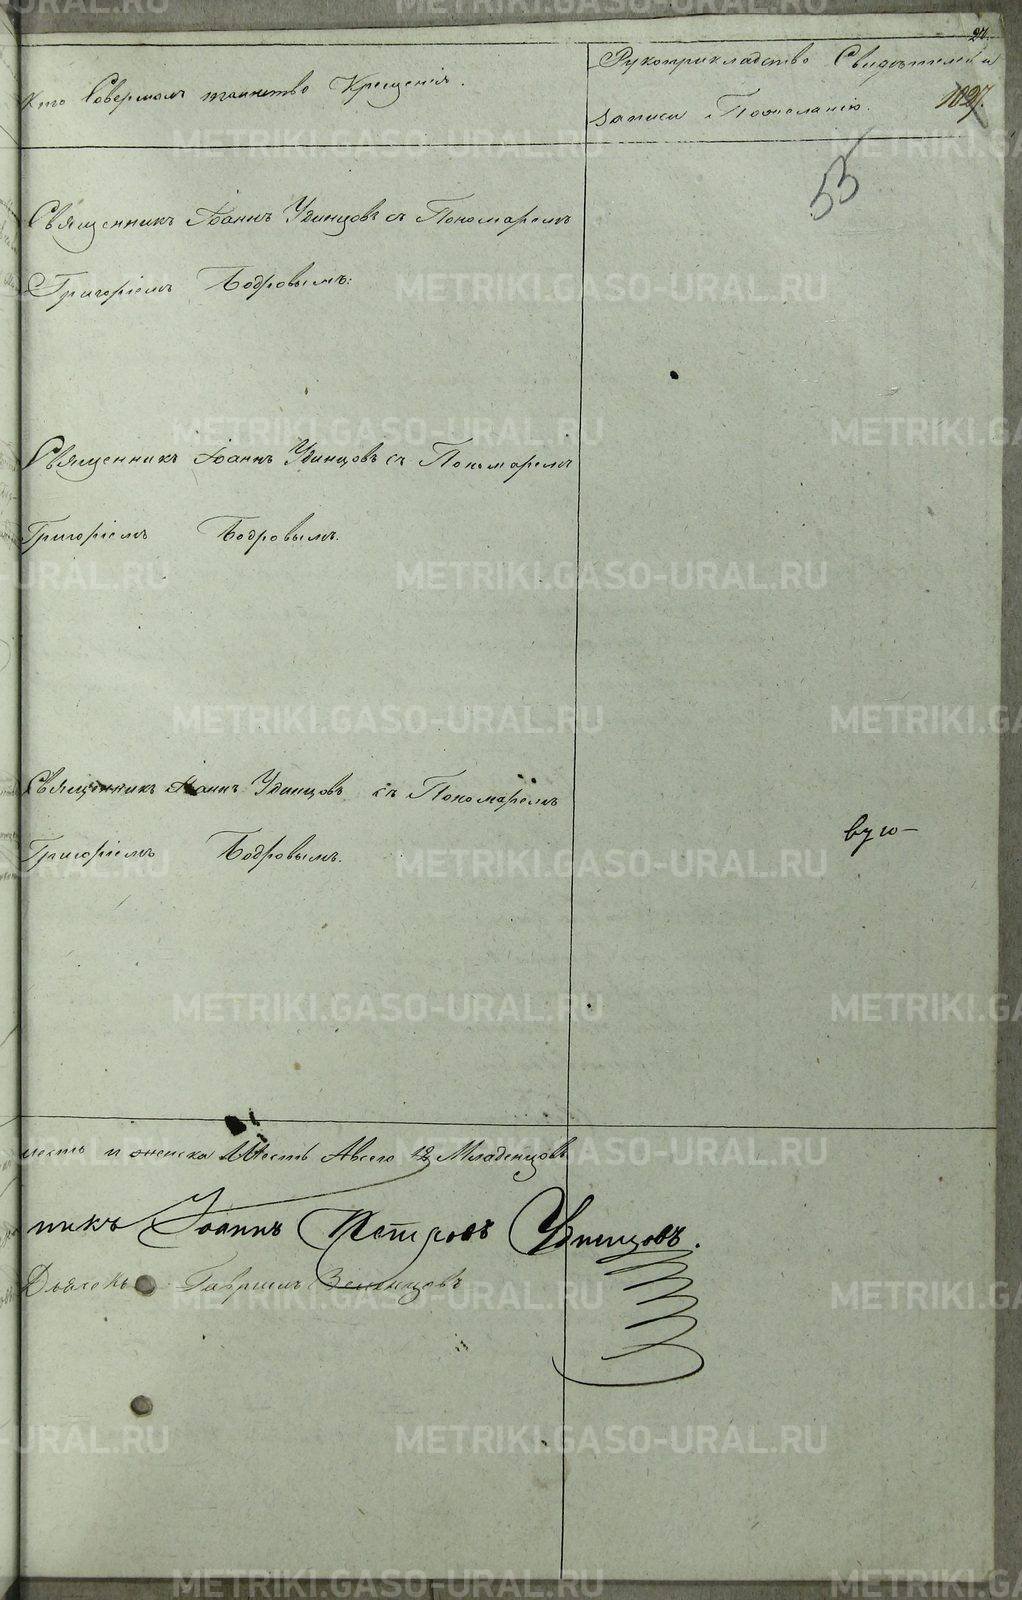 24.
Кто Совершалъ таинство Крещенія.
Рукоприкладство Свидѣтелей и
записи По желанію.
1027.
53
Священникъ Іоаннъ Удинцовъ съ Пономаремъ
Григоріемъ Бодровымъ:
Священникъ Іоаннъ Удинцовъ съ Пономаремъ
Григоріемъ Бодровымъ.
Священникъ Іоаннъ Удинцовъ съ Пономаремъ
Григоріемъ Бодровымъ.
шесть и женска Шесть Авсего 12 Младенцовъ
никъ Іоаннъ Петровъ Удинцовъ.
Дьяконъ Гавріилъ
METRIKI.GASO-URAL.RU